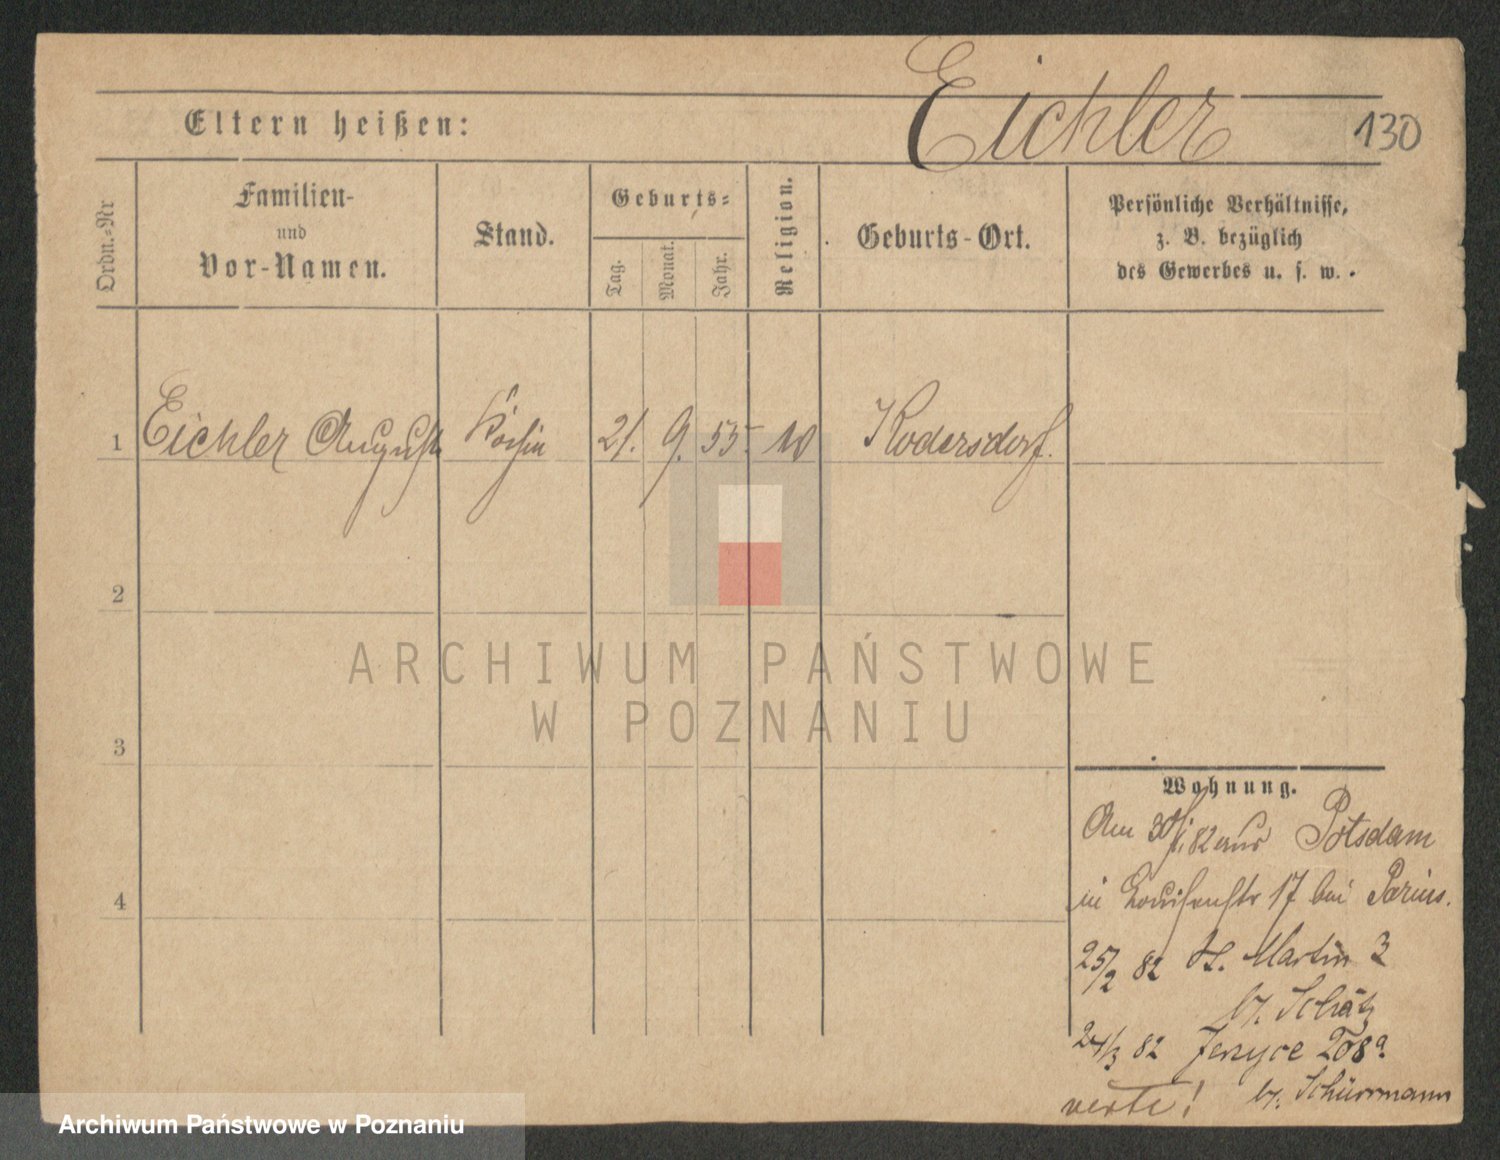 Eichler
130
Eltern heißen:
Ordn.-Nr
Familien-
und
Vor-Namen.
Stand.
Geburts-
Tag.
Monat.
Jahr.
Religion.
Geburts-Ort.
Persönliche Verhältnisse,
z. B. bezüglich
des Gewerbes u. s. w.
1 Eichler August Köchin 21. 9. 55. Rodersdorf.
2
3
4
Wohnung.
Am 82 aus Potsdam
in Louisenstr 17 bei
25/2 82 St. Martin 3
b/. Schätz
24/3 82 Jerzyce 208a
b/. Schürmann
verte!
ARCHIWUM PAŃSTWOWE
W POZNANIU
Archiwum Państwowe w Poznaniu